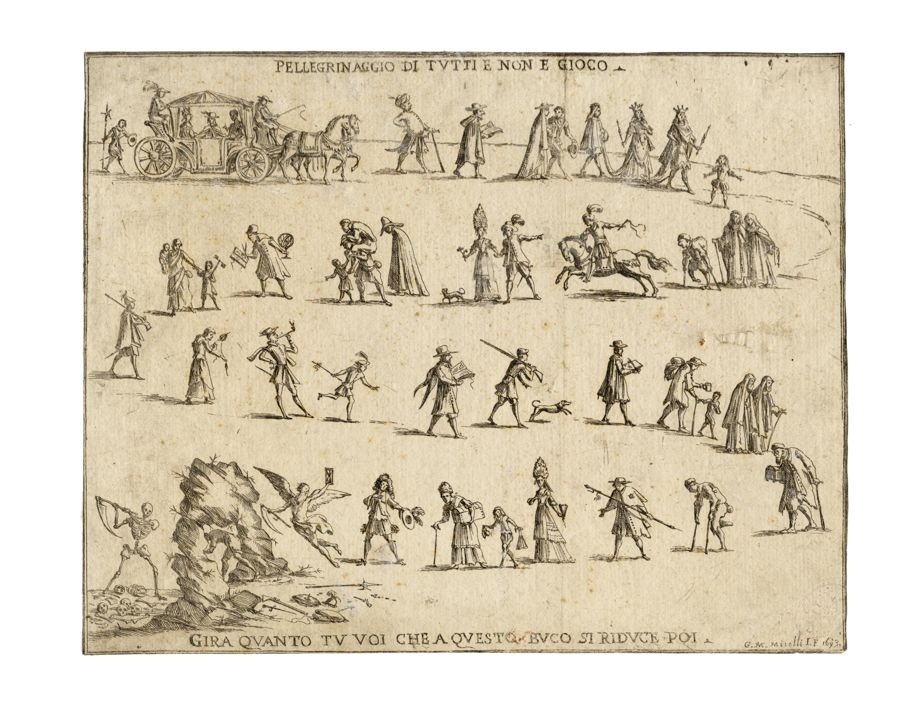 PELLEGRINAGGIO DI TVTTI E NON E GIOCO
GIRA QVANTO TV VOI CHE A QVESTO BVCO SI RIDVCE POI
G. M. Mitelli I. F. 1693